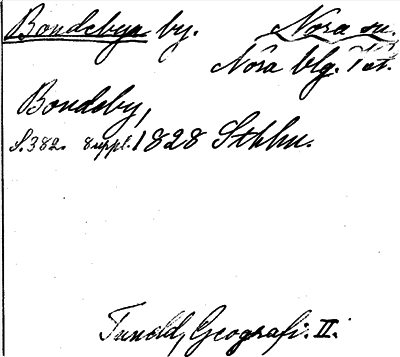 Bondebyn by. Nora sn.
Nora blg.
Bondeby,
S. 382. suppl. 1828 Sthlm.
Tuneld, Geografi. II.